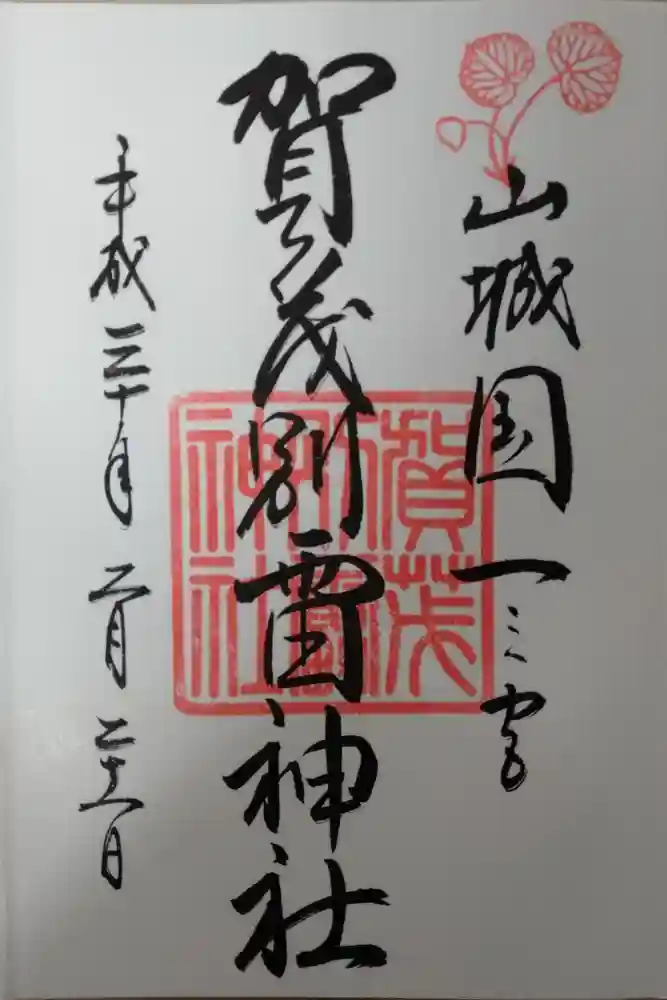 山城国一之宮
賀茂別雷神社
平成三十年 二月 二十一日
賀茂
別雷
神社